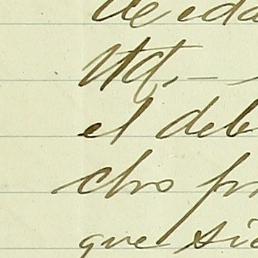 de eda
Ud,—
el deb
cho pr
que sie